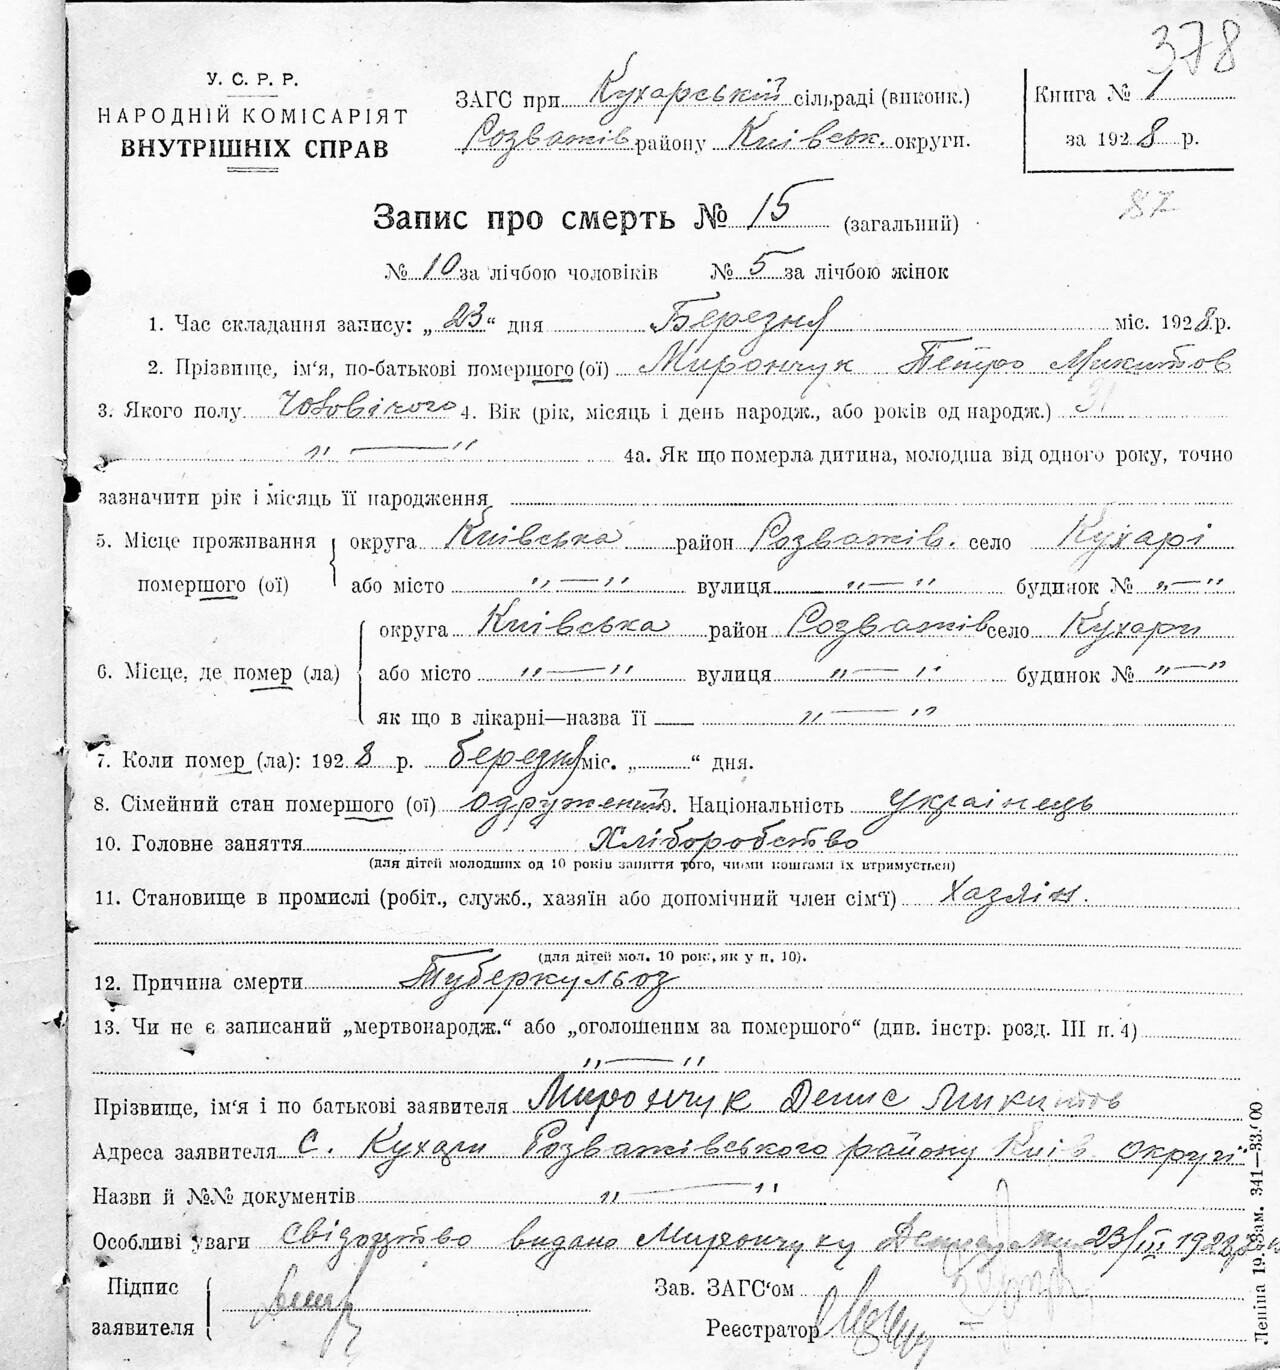 378
У. С. Р. Р.
НАРОДНІЙ КОМІСАРІЯТ
ВНУТРІШНІХ СПРАВ
ЗАГС при Кухарській сільраді (виконк.)
Розважів району Київськ. округи.
Книга № 1
за 1928 р.
87
Запис про смерть № 15 (загальний)
№ 10 за лічбою чоловіків № 5 за лічбою жінок
1. Час складання запису: „23“ дня Березня міс. 1928 р.
2. Прізвище, ім'я, по-батькові помершого (ої) Мирончук Петро Микитов
3. Якого полу Чоловічого 4. Вік (рік, місяць і день народж., або років од народж.) 31
„ — “ 4а. Як що померла дитина, молодша від одного року, точно
зазначити рік і місяць її народження
5. Місце проживання помершого (ої) округа Київська район Розважів. село Кухарі
або місто „ — “ вулиця „ — “ будинок № „ — “
6. Місце, де помер (ла) округа Київська район Розважів село Кухари
або місто „ — “ вулиця „ — “ будинок № „ — “
як що в лікарні—назва її „ — “
7. Коли помер (ла): 1928 р. березня міс. „ “ дня.
8. Сімейний стан помершого (ої) одружений 9. Національність українець
10. Головне заняття Хліборобство
(для дітей молодших од 10 років заняття того, чиїми коштами їх втримується)
11. Становище в промислі (робіт., служб., хазяїн або допомічний член сім'ї) Хазяін.
(для дітей мол. 10 рок., як у п. 10).
12. Причина смерти Туберкульоз
13. Чи не є записаний „мертвонародж.“ або „оголошеним за помершого“ (див. інстр. розд. III п. 4)
„ — “
Прізвище, ім'я і по батькові заявителя Мирончук Денис Микитов
Адреса заявителя С. Кухари Розважівського району Київ. округі
Назви й №№ документів „ — “
Особливі уваги Свідоцтво видано Мирончуку Денису 23/III 1928
Підпис заявителя
Зав. ЗАГС'ом
Реєстратор
Леніна 19. Зам. 341—33.000